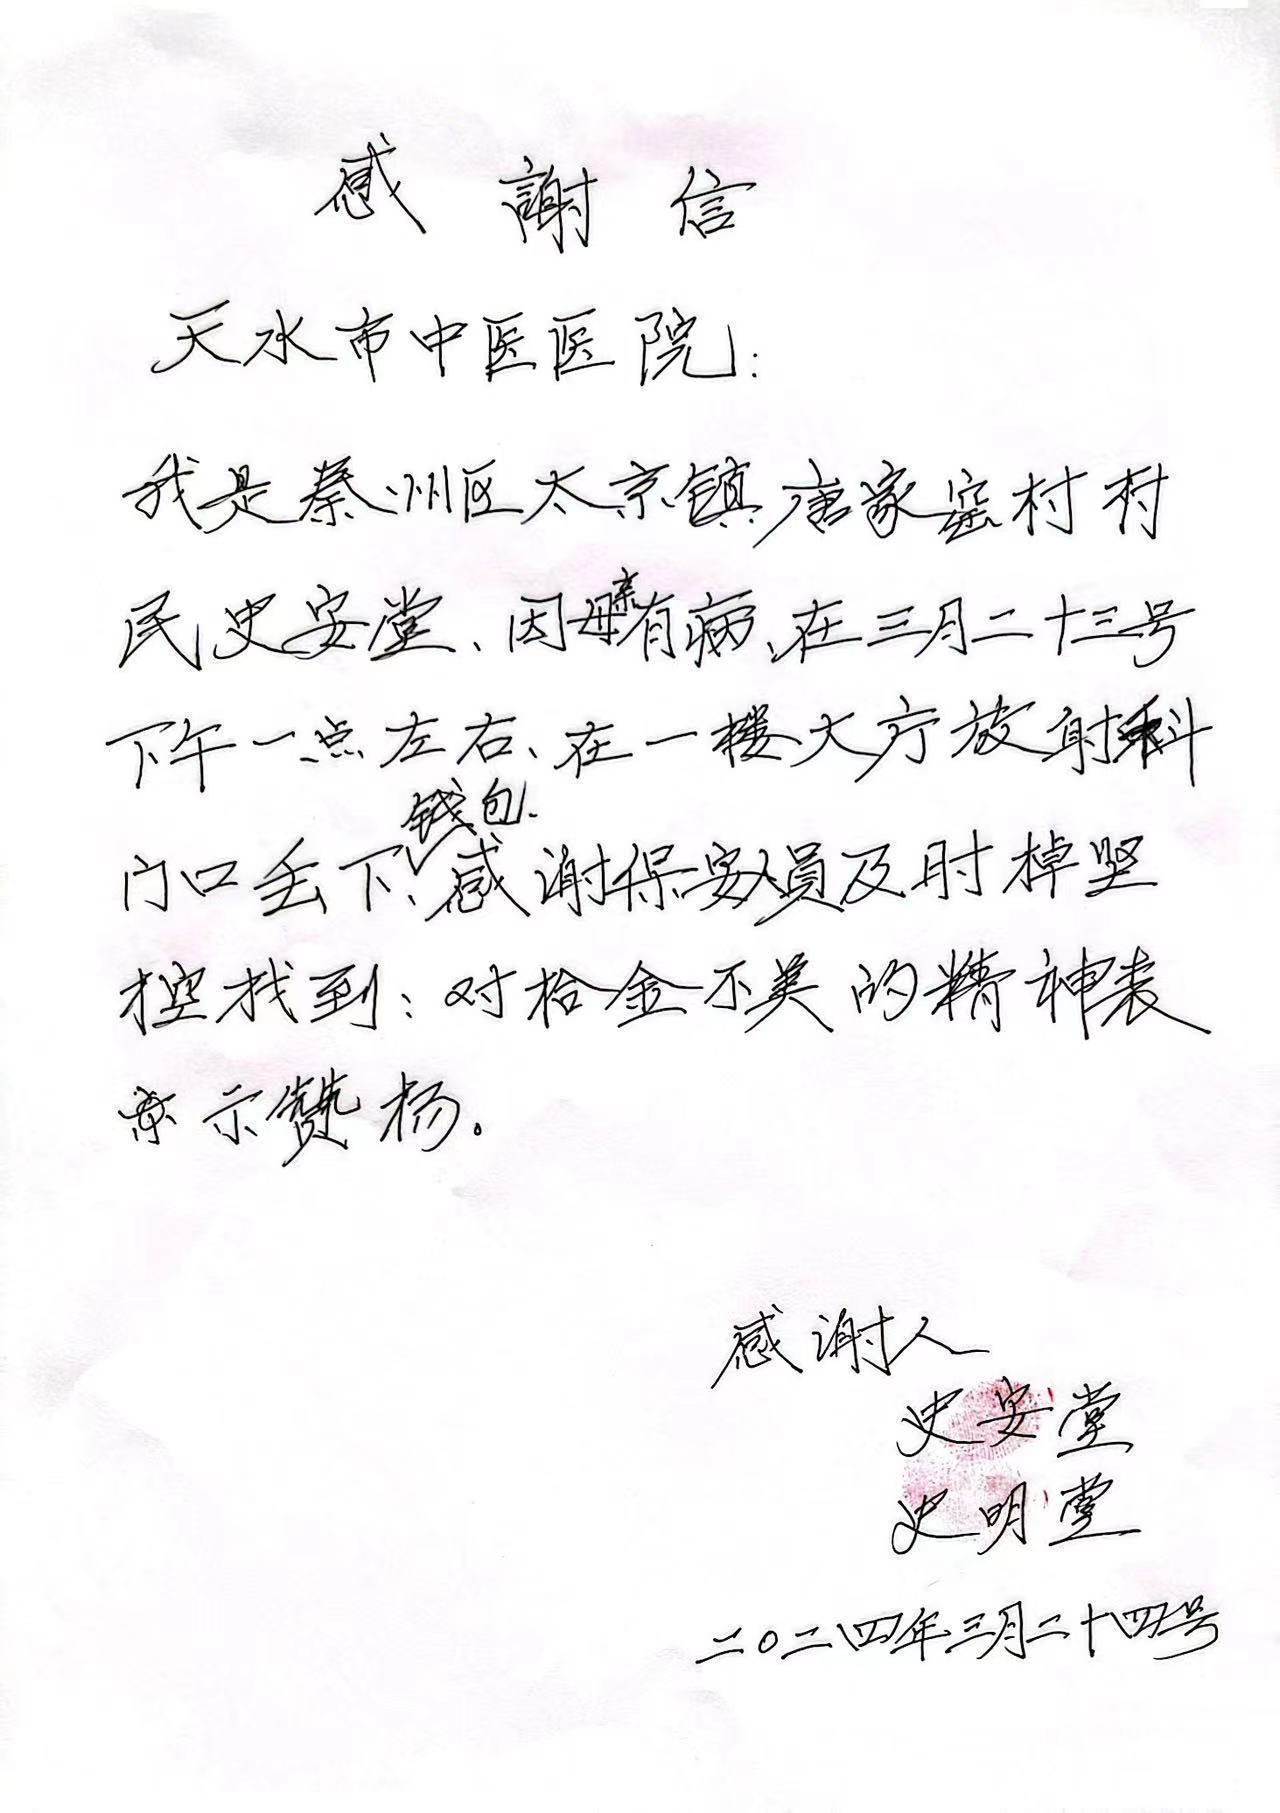 感謝信
天水市中医医院：
我是秦州区太京镇唐家窑村村
民史安堂、因母亲有病、在三月二十三号
下午一点左右、在一楼大厅放射科
门口丢下钱包、感谢保安人员及时掉坚
控找到：对拾金不美的精神表
示赞杨。
感谢人
史安堂
史明堂
二〇二四年三月二十四号